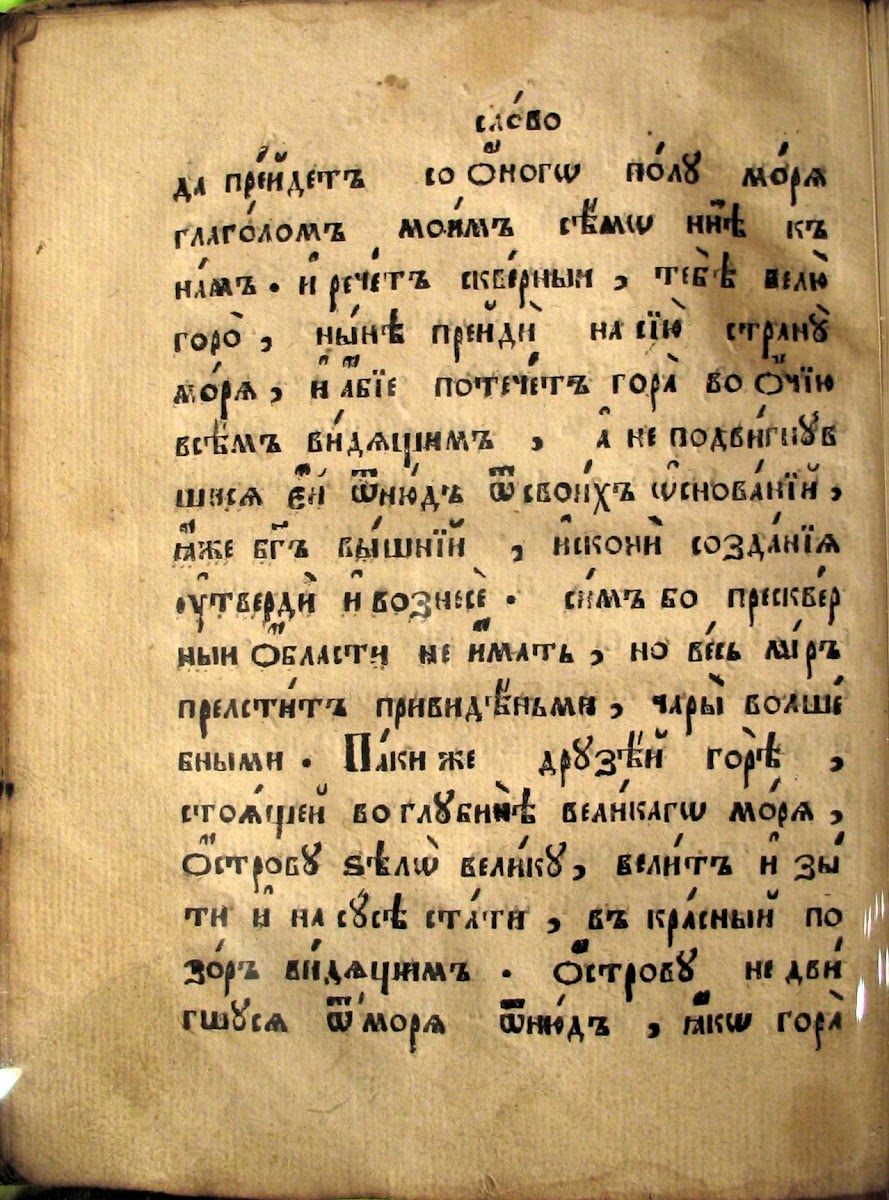 сло́во
да пре́й̆детъ со ѻ҆́ногѡ по́лꙋ мо́рѧ
глаго́ломъ мои́мъ сѣ́мѡ нн҃ѣ къ
на́мъ . и҆ рече́тъ скве́рныи , тебѣ̀ велю̀
горо̀ , ны́нѣ прей̆дѝ на сїю̀ странꙋ̀
мо́рѧ , и҆ а҆́бїе потече́тъ гора̀ во ѻ҆чїю̀
всѣ́мъ ви́дѧщимъ , а҆ не подви́гнꙋв
шисѧ є҆́й ѿню́дъ ѿ свои́хъ ѡ҆снова́нїй ,
ꙗ҆́же бг҃ъ вы́шнїй , и҆сконѝ созда́нїѧ
ᲂу҆твердѝ и҆ вознесѐ . си́мъ бо прескве́р
ныи ѻ҆́бласти не и҆́мать , но ве́сь мі́ръ
прелсти́тъ привидѣ́ньми , чары̀ волше́
бными . Па́ки же дрꙋзѣ́й горѣ̀ ,
стоѧ́щей во глꙋбинѣ̀ вели́кагѡ мо́рѧ ,
ѻ҆́стровꙋ ѕѣлѡ̀ вели́кꙋ , вели́тъ и҆ зы́
ти и҆ на сꙋ́сѣ ста́ти , въ кра́сный по
зо́ръ ви́дѧщимъ . ѻ҆́стровꙋ не дви́
гшꙋсѧ ѿ мо́рѧ ѿню́дъ , ꙗ҆́кѡ гора̀